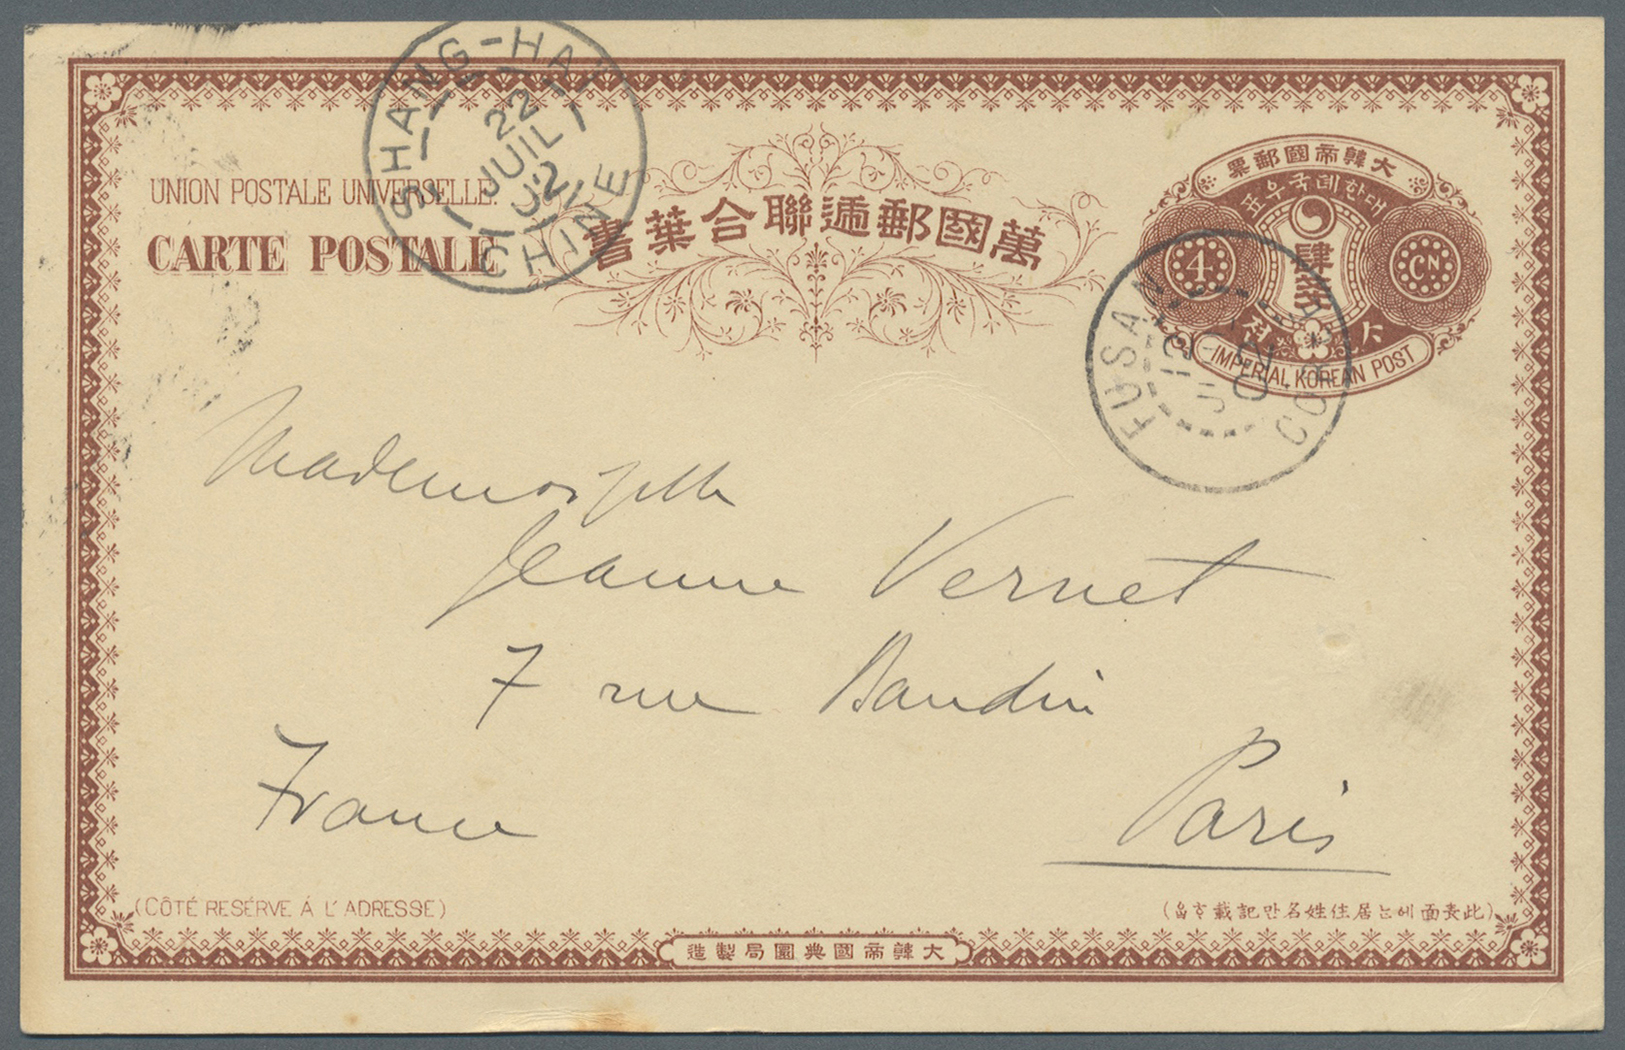 SHANG-HAI
22
JUIL
02
CHINE
UNION POSTALE UNIVERSELLE.
CARTE POSTALE
萬國郵遞聯合葉書
大韓帝國郵票
대한데국우표
4
肆錢
CN
IMPERIAL KOREAN POST
FUSAN
12
02
Mademoiselle
Jeanne Vernet
7 rue Baudin
Paris
France
(CÔTÉ RESÉRVE Á L'ADRESSE)
(此表面에는居住姓名만記載)
大韓帝國典圜局製造